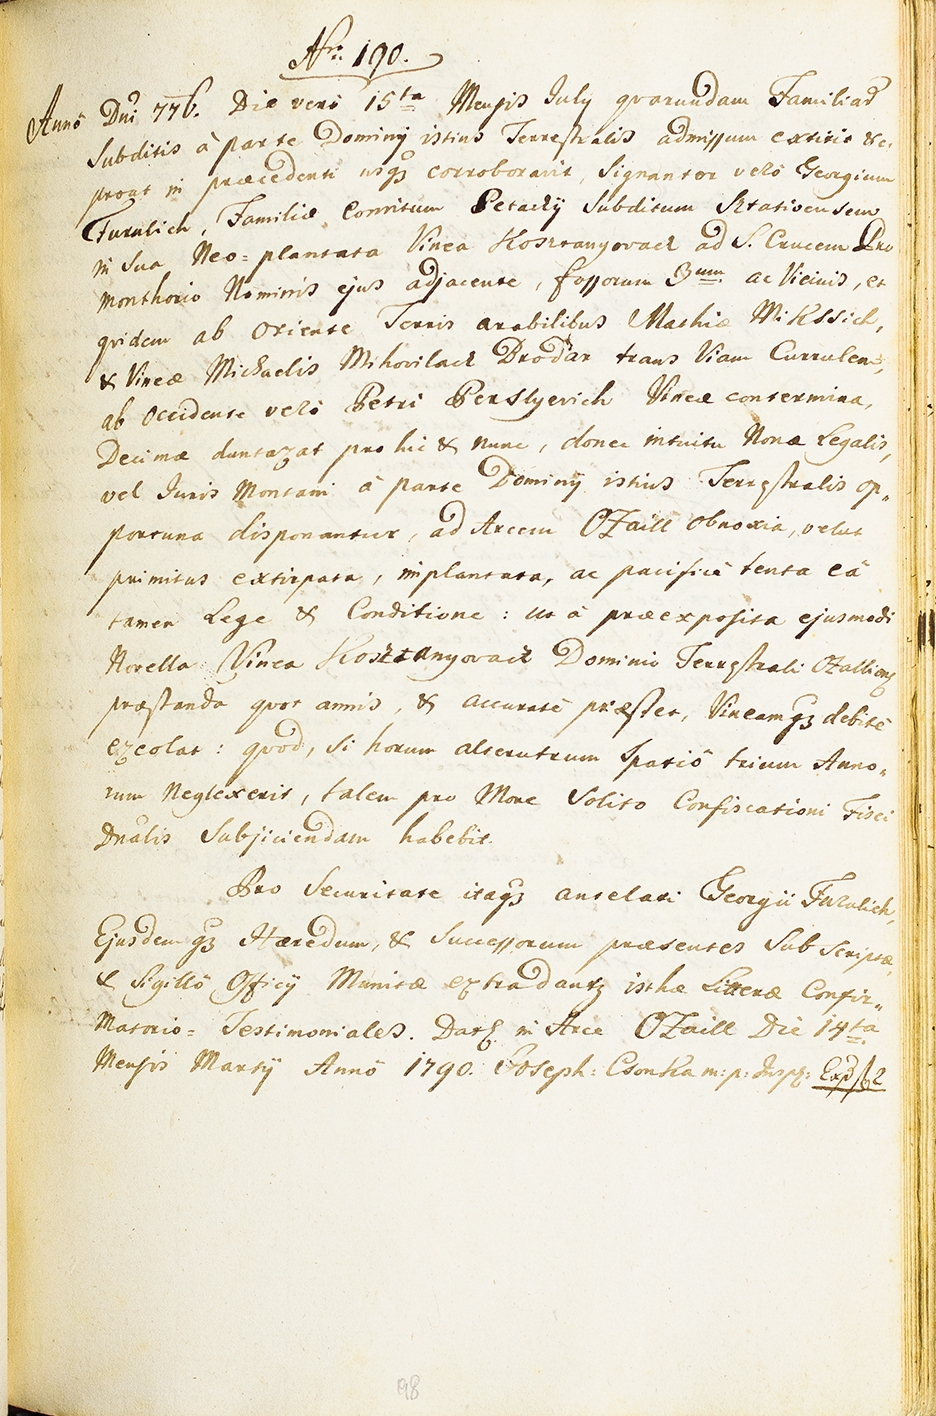 Nr: 190.
Annô Dni 776. Die verô 15ta Mensis July quorundam Familiae
Subditis â parte Dominij istius Terrestralis admissum extitit &c.
prout in praecedenti usq3 corroboravit, signanter verô Georgium
Furulich, Familiae Comitum Petacky Subditum Stativensem
in sua Neo=plantata Vinea Kosztanyovack ad S. Crucem Pro
monthorio Nominis ejus adjacente, fossorum 3um. ac Vicinis, et
quidem ab oriente Terris arabilibus Mathiae Mikssich,
& Vineae Michaelis Mihovilack Brodar trans Viam Currulem,
ab occidente verô Petri Perslyevich Vineae contermina,
Decimae duntaxat pro hic & nunc, donec intuitu Nonae Legalis,
vel Juris Montani â parte Dominij istius Terrestralis op„
portuna disponantur, ad Arcem OZaill obnoxia, velut
primitus extirpata, implantata, ac pacificè tenta eâ
tamen Lege & Conditione: ut â praeexposita ejusmodi
Novella Vinea Kosztanyovack Dominio Terrestrali Ozallien
praestanda quot annis, & accuratè praestet, Vineamq3 debitè
excolat: quod, si horum alterutrum spatiô trium Anno„
rum Neglexerit, talem pro More Solito Confiscationi Fisci
Dnalis Subjiciendam habebit.
Pro Securitate itaq3 antelati Georgii Furulich,
Ejusdemq3 Haeredum, & Successorum praesentes Subscriptae,
& Sigillô Officij Munitae extradantur isthae Litterae Confir„
Matorio=Testimoniales. Dat in Arce OZaill Die 14ta
Mensis Martij Annô 1790. Joseph: Csonka m: p: Insp:
98